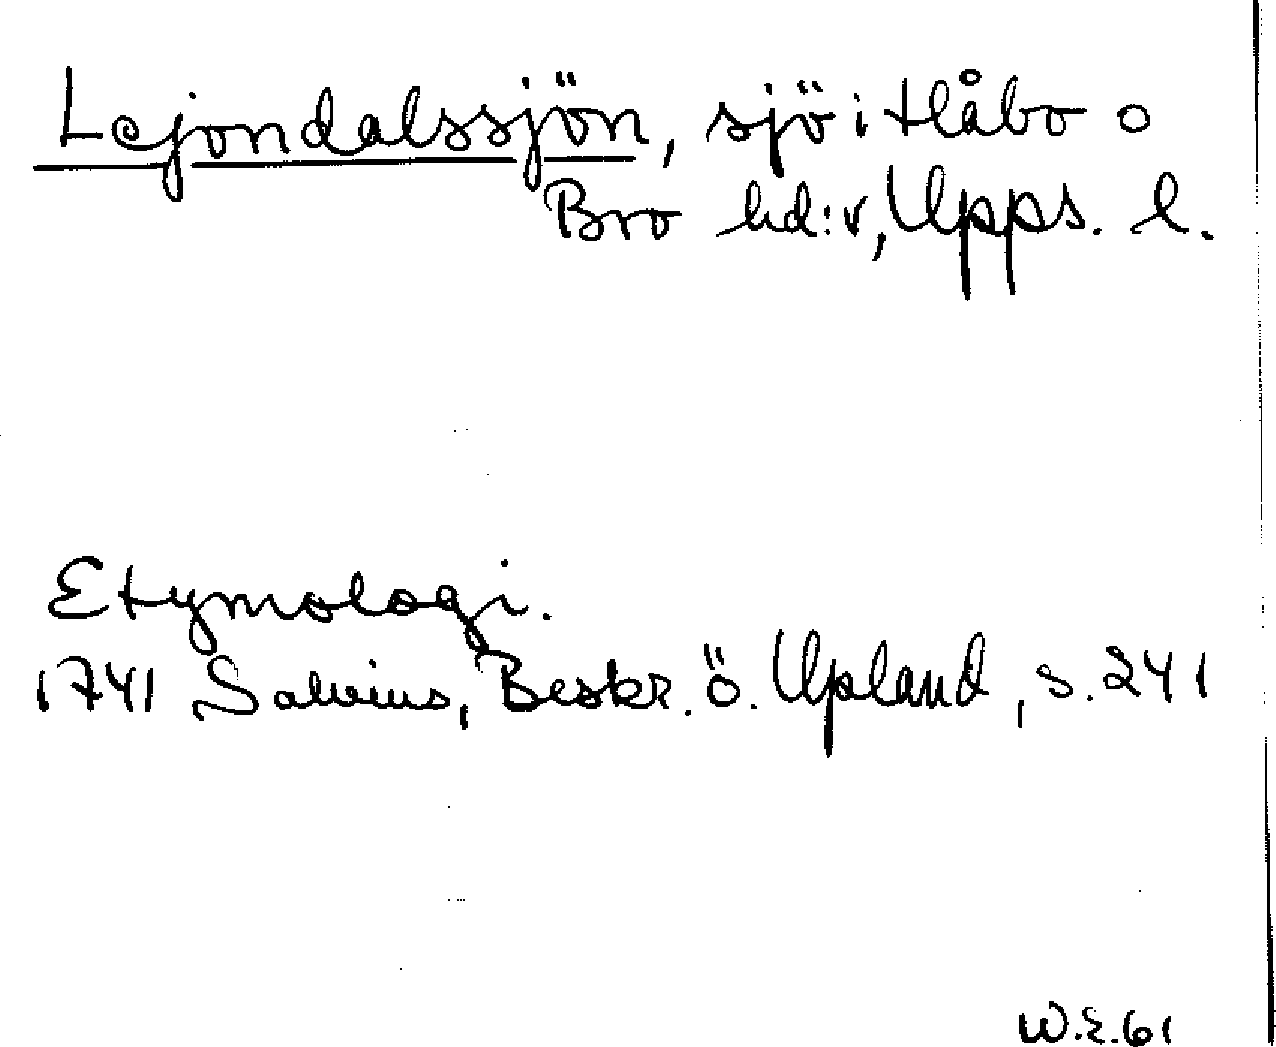 Lejondalssjön, sjö i Håbo o
Bro hd:r, Upps. l.
Etymologi.
1741 Salvius, Beskr. ö. Upland, s. 241
W.E. 61